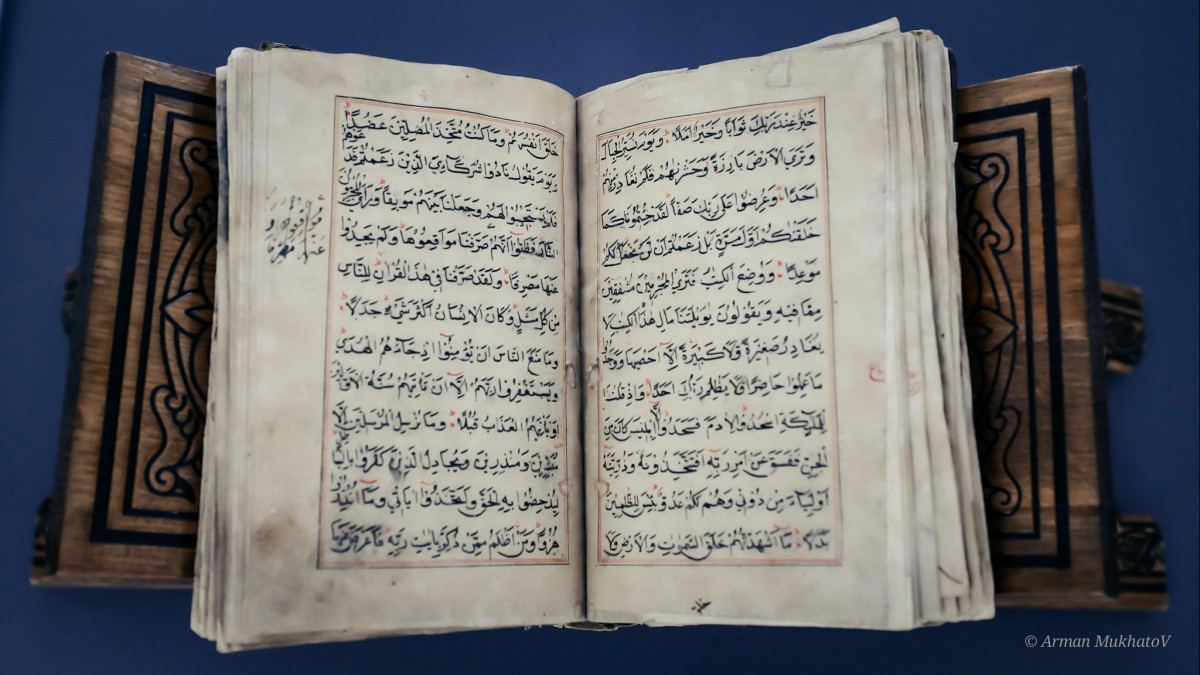 خَيْرٌ عِنْدَ رَبِّكَ ثَوَابًا وَخَيْرٌ اَمَلًا وَيَوْمَ نُسَيِّرُ الْجِبَالَ
وَتَرَى الْاَرْضَ بَارِزَةً وَحَشَرْنَاهُمْ فَلَمْ نُغَادِرْ مِنْهُمْ
اَحَدًا وَعُرِضُوا عَلٰى رَبِّكَ صَفًّا لَقَدْ جِئْتُمُونَا كَمَا
خَلَقْنَاكُمْ اَوَّلَ مَرَّةٍ بَلْ زَعَمْتُمْ اَنْ لَنْ نَجْعَلَ لَكُمْ
مَوْعِدًا وَوُضِعَ الْكِتٰبُ فَتَرَى الْمُجْرِمِينَ مُشْفِقِينَ
مِمَّا فِيهِ وَيَقُولُونَ يٰوَيْلَتَنَا مَالِ هٰذَا الْكِتٰبِ لَا
يُغَادِرُ صَغِيرَةً وَلَا كَبِيرَةً اِلَّا اَحْصٰيهَا وَوَجَدُوا
مَا عَمِلُوا حَاضِرًا وَلَا يَظْلِمُ رَبُّكَ اَحَدًا وَاِذْ قُلْنَا
لِلْمَلٰئِكَةِ اسْجُدُوا لِاٰدَمَ فَسَجَدُوا اِلَّا اِبْلِيسَ كَانَ مِنَ
الْجِنِّ فَفَسَقَ عَنْ اَمْرِ رَبِّهِ اَفَتَتَّخِذُونَهُ وَذُرِّيَّتَهُ
اَوْلِيَاءَ مِنْ دُونِي وَهُمْ لَكُمْ عَدُوٌّ بِئْسَ لِلظّٰلِمِينَ
بَدَلًا مَا اَشْهَدْتُهُمْ خَلْقَ السَّمٰوٰتِ وَالْاَرْضِ وَلَا
خَلْقَ اَنْفُسِهِمْ وَمَا كُنْتُ مُتَّخِذَ الْمُضِلِّينَ عَضُدًا
وَيَوْمَ يَقُولُ نَادُوا شُرَكَاءِيَ الَّذِينَ زَعَمْتُمْ فَدَعَوْهُمْ
فَلَمْ يَسْتَجِيبُوا لَهُمْ وَجَعَلْنَا بَيْنَهُمْ مَوْبِقًا وَرَاَ الْمُجْرِمُونَ
النَّارَ فَظَنُّوا اَنَّهُمْ مُوَاقِعُوهَا وَلَمْ يَجِدُوا
عَنْهَا مَصْرِفًا وَلَقَدْ صَرَّفْنَا فِي هٰذَا الْقُرْاٰنِ لِلنَّاسِ
مِنْ كُلِّ مَثَلٍ وَكَانَ الْاِنْسَانُ اَكْثَرَ شَيْءٍ جَدَلًا
وَمَا مَنَعَ النَّاسَ اَنْ يُؤْمِنُوا اِذْ جَاءَهُمُ الْهُدٰى
وَيَسْتَغْفِرُوا رَبَّهُمْ اِلَّا اَنْ تَاْتِيَهُمْ سُنَّةُ الْاَوَّلِينَ
اَوْ يَاْتِيَهُمُ الْعَذَابُ قُبُلًا وَمَا نُرْسِلُ الْمُرْسَلِينَ اِلَّا
مُبَشِّرِينَ وَمُنْذِرِينَ وَيُجَادِلُ الَّذِينَ كَفَرُوا بِالْبَاطِلِ
لِيُدْحِضُوا بِهِ الْحَقَّ وَاتَّخَذُوا اٰيَاتِي وَمَا اُنْذِرُوا
هُزُوًا وَمَنْ اَظْلَمُ مِمَّنْ ذُكِّرَ بِاٰيَاتِ رَبِّهِ فَاَعْرَضَ عَنْهَا
© Arman MukhatoV